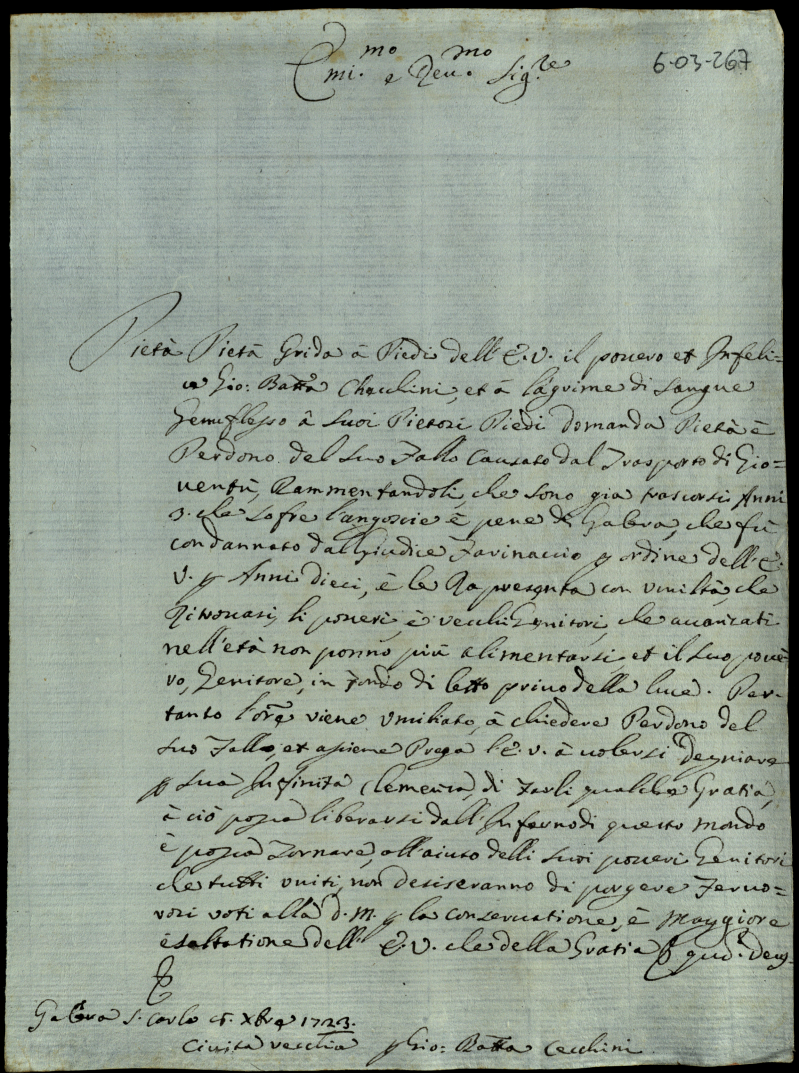 6-03-267
Emi.mo e Reu.mo Sig.re
Pietà Pietà Grida à Piedi dell'E.V. il pouero et Infeli=
ce Gio: Batta Checchini, et à lagrime di sangue
Genuflesso à suoi Pietosi Piedi domanda Pietà è
Perdono del suo Fallo causato dal Trasporto di Gio=
uentù, Rammentandoli, che sono gia trascorsi Anni
3. che sofre l'angoscie è pene di Galera, che fù
condannato dal Giudice Farinaccio p ordine dell'E.
V. p Anni Dieci, è le Rapresenta con vmiltà, che
Ritrouasi, li poueri, è vecchi Genitori, che auanzati
nell'età non ponno più alimentarsi, et il suo poue
ro, Genitore, in fondo di letto priuo della luce. Per-
tanto l'ore viene vmiliato, à chiedere Perdono del
suo Fallo, et asieme Prega l'E.V. à uolersi Degniare
p sua Infinita Clemenza, di Farli qualche Gratia,
à ciò possa liberarsi dall'Inferno di questo mondo
è possa Tornare, all'aiuto delli suoi poueri Genitori
che tutti vniti, non desiseranno di porgere Feruo=
rosi voti alla D.M. p la conseruatione, è Maggiore
esaltatione dell'E.V. che della Gratia
Galera S. Carlo Xbre 1723.
Ciuita vecchia Gio: Batta Cecchini